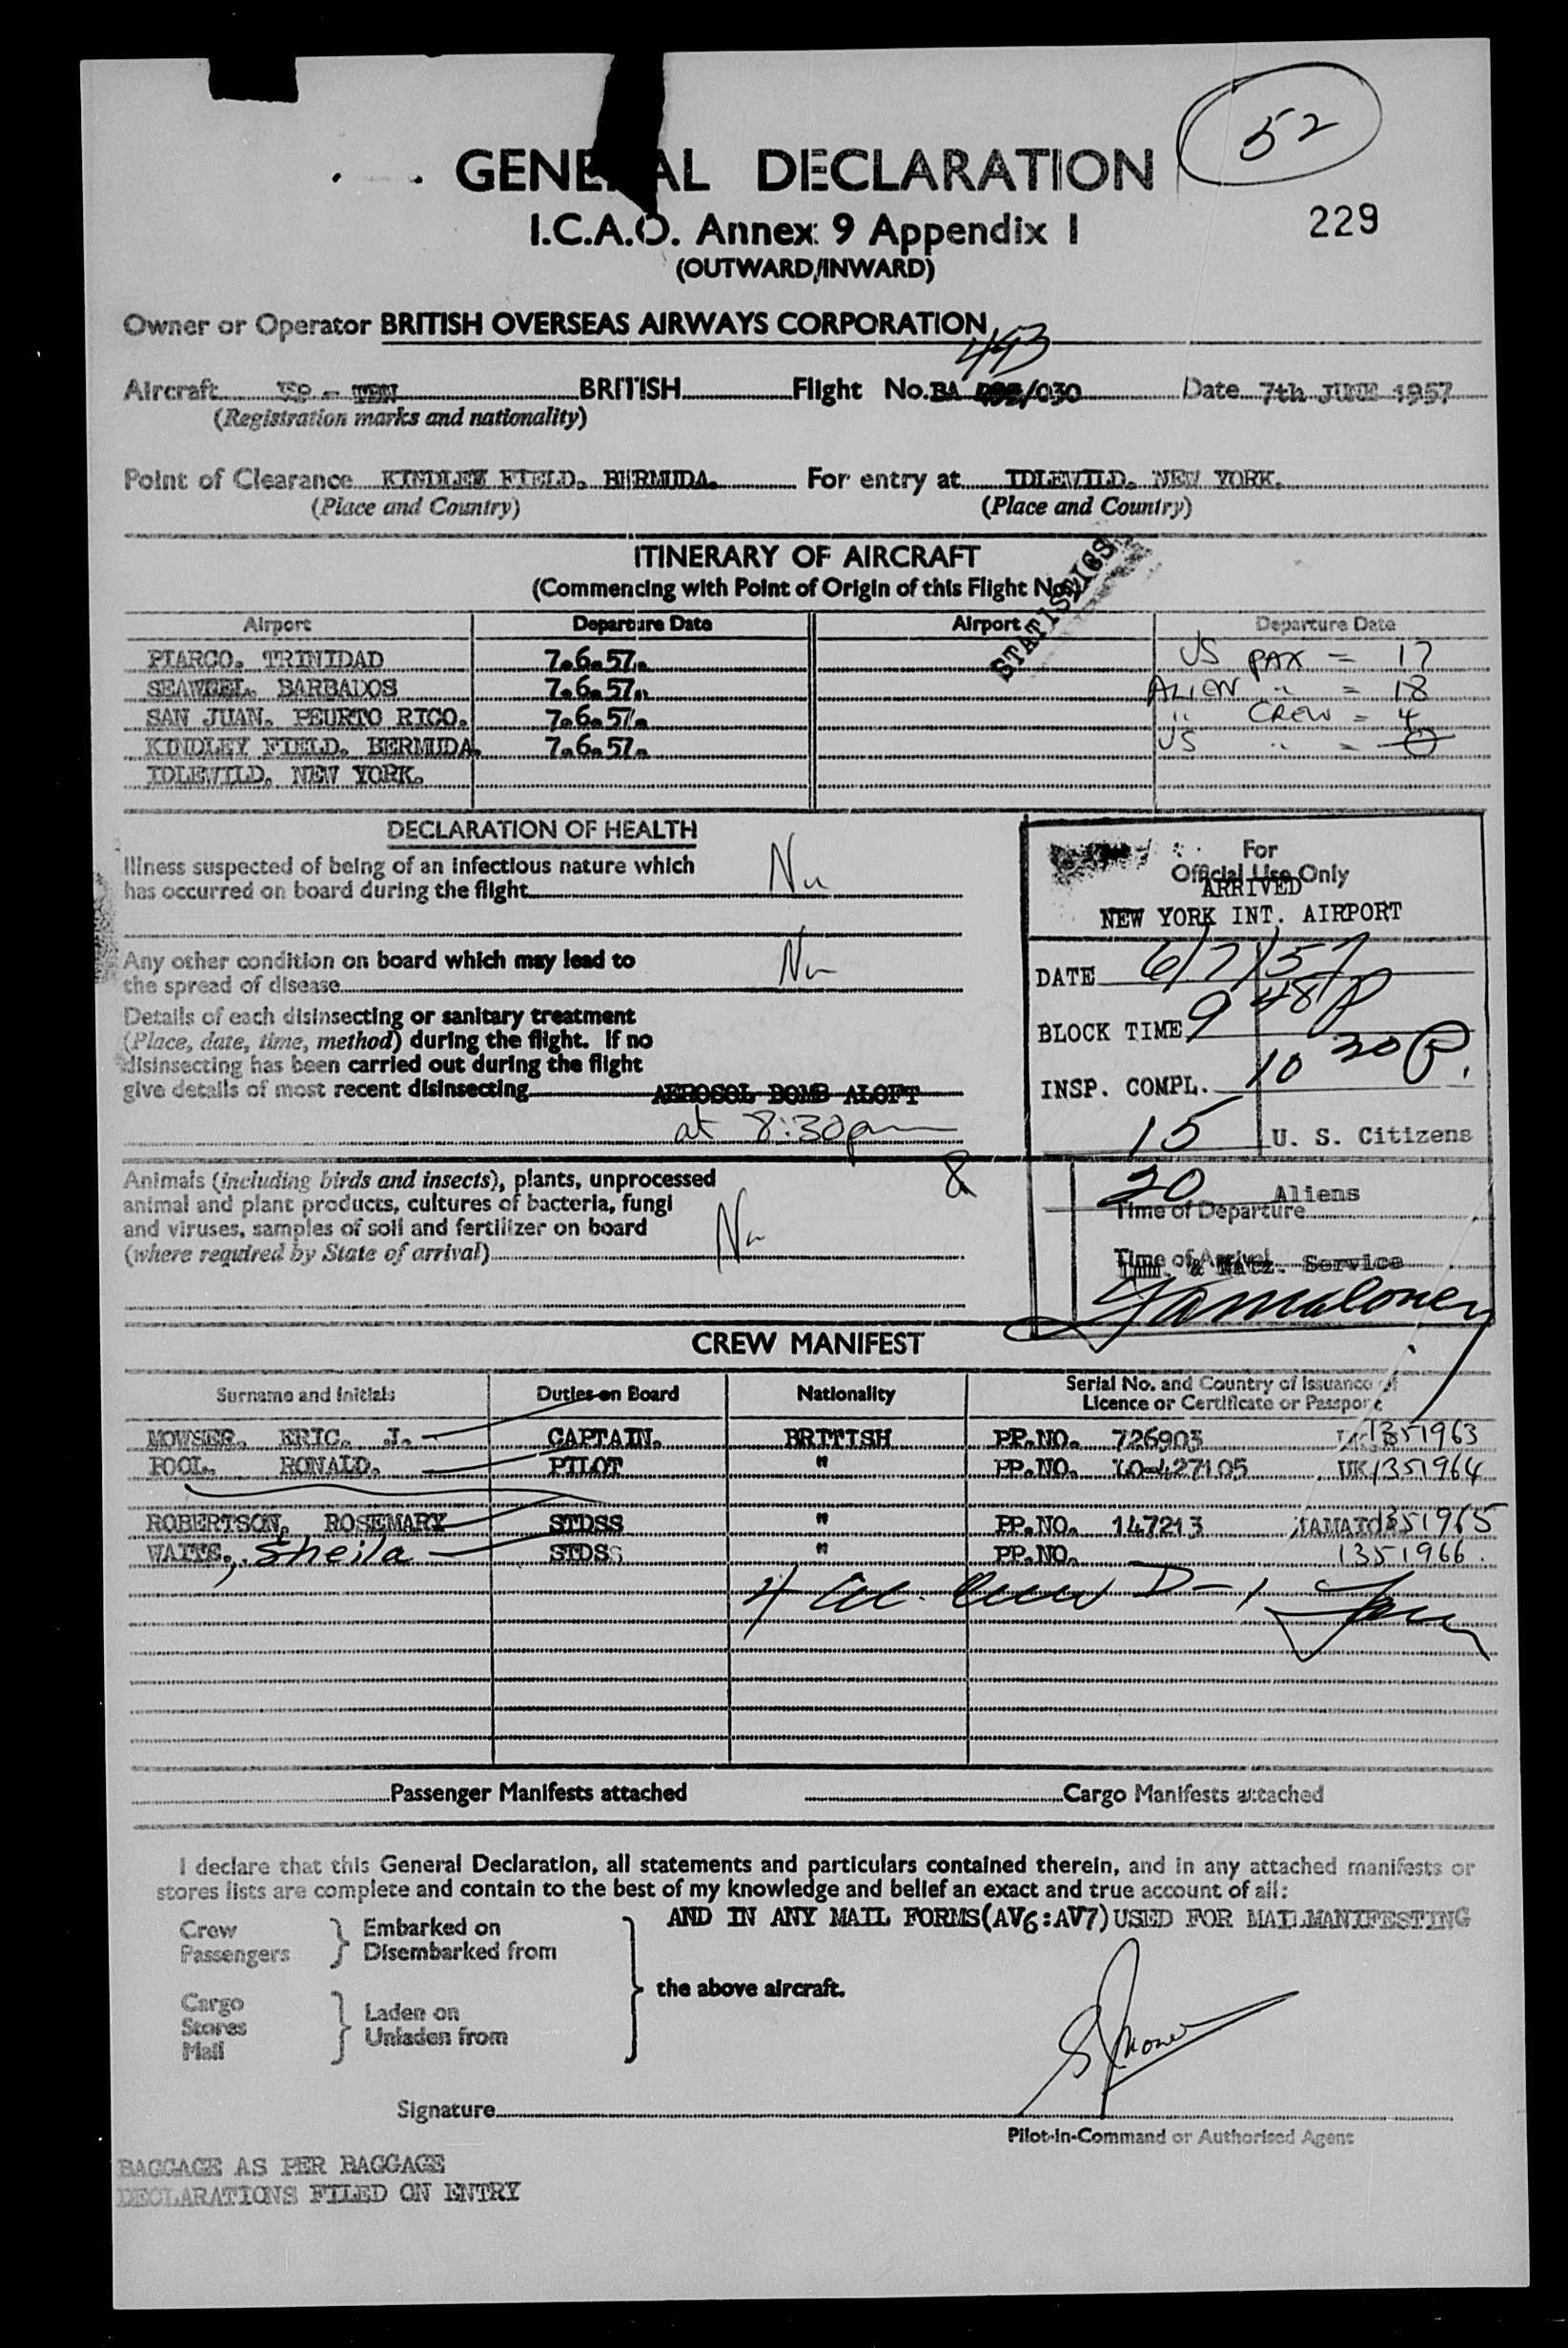 52
GENERAL DECLARATION
229
I.C.A.O. Annex 9 Appendix I
(OUTWARD/INWARD)
Owner or Operator BRITISH OVERSEAS AIRWAYS CORPORATION
493
Aircraft VP - BRITISH Flight No. BA /030 Date 7th JUNE 1957
(Registration marks and nationality)
Point of Clearance KINDLEY FIELD. BERMUDA. For entry at IDLEWILD. NEW YORK.
(Place and Country) (Place and Country)
ITINERARY OF AIRCRAFT
(Commencing with Point of Origin of this Flight No.)
STATISTICS
Airport Departure Date Airport Departure Date
PIARCO. TRINIDAD 7.6.57. US PAX = 17
SEAWELL. BARBADOS 7.6.57. ALIEN " = 18
SAN JUAN. PEURTO RICO. 7.6.57. " CREW = 4
KINDLEY FIELD. BERMUDA. 7.6.57. US " = 0
IDLEWILD. NEW YORK.
DECLARATION OF HEALTH
Illness suspected of being of an infectious nature which
has occurred on board during the flight
Any other condition on board which may lead to
the spread of disease
Details of each disinsecting or sanitary treatment
(Place, date, time, method) during the flight. If no
disinsecting has been carried out during the flight
give details of most recent disinsecting AEROSOL BOMB ALOFT
at 8:30pm
Animals (including birds and insects), plants, unprocessed
animal and plant products, cultures of bacteria, fungi
and viruses, samples of soil and fertilizer on board
(where required by State of arrival)
For
Official Use Only
ARRIVED
NEW YORK INT. AIRPORT
DATE 6/7/57
BLOCK TIME 9 48 P
INSP. COMPL. 10 30 P.
15 U. S. Citizens
20 Aliens
Time of Departure
Time of Arrival
Imm. & Natz. Service
CREW MANIFEST
Surname and Initials Duties on Board Nationality Serial No. and Country of Issuance of
Licence or Certificate or Passport
MOWSER. ERIC. J. CAPTAIN. BRITISH PP.NO. 726903 1351963
POOL. RONALD. PILOT " PP.NO. LO-427105 UK 1351964
ROBERTSON, ROSEMARY STDSS " PP.NO. 147213 1351965
WAITE, Sheila STDSS " PP.NO. 1351966
4 D-1
Passenger Manifests attached Cargo Manifests attached
I declare that this General Declaration, all statements and particulars contained therein, and in any attached manifests or
stores lists are complete and contain to the best of my knowledge and belief an exact and true account of all:
AND IN ANY MAIL FORMS(AV6:AV7)USED FOR MAILMANIFESTING
Crew
Passengers
Embarked on
Disembarked from
Cargo
Stores
Mail
Laden on
Unladen from
the above aircraft.
Signature
Pilot-in-Command or Authorised Agent
BAGGAGE AS PER BAGGAGE
DECLARATIONS FILED ON ENTRY